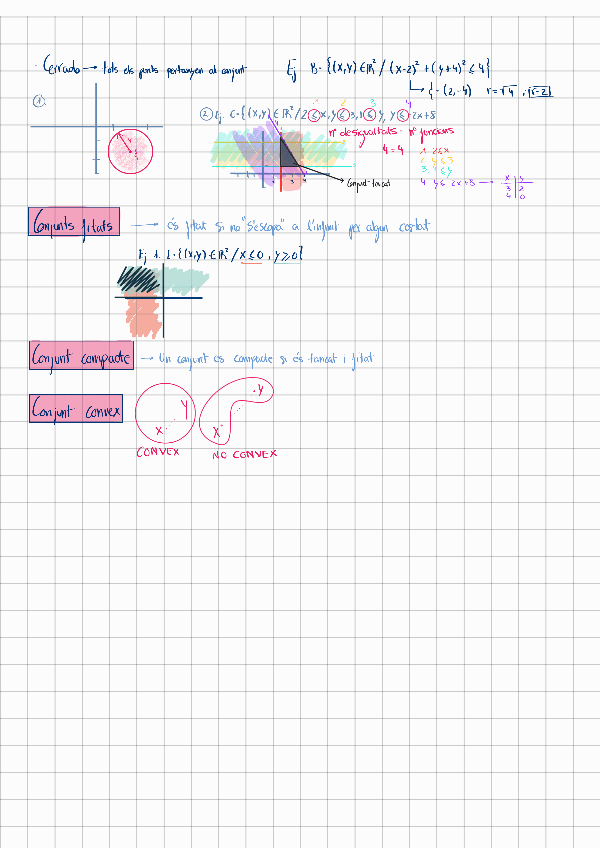 · Cerrado → tots els punts pertanyen al conjunt
Ej B={(x,y)∈ℝ²/(x-2)²+(y+4)²≤4}
→ {-(2,-4) r=√4, r=2
①
② Ej. C={(x,y)∈ℝ²/2≤x, y≤3, 1≤y, y≤-2x+8
1 2 3 4
nº desigualtats = nº funcions
4=4
1. 2≤x
2. y≤3
3. 1≤y
4. y≤-2x+8 →
x | y
3 | 2
4 | 0
Conjunt tancat
Conjunts fitats → és fitat si no "s'escapa" a l'infinit per algun costat
Ej 1. L={(x,y)∈ℝ²/x≤0, y≥0}
Conjunt compacte → Un conjunt es compacte si és tancat i fitat
Conjunt convex
X Y
X Y
CONVEX
NO CONVEX